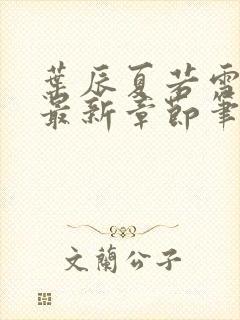 葉辰夏若雪
最新章節筆
文蘭公子